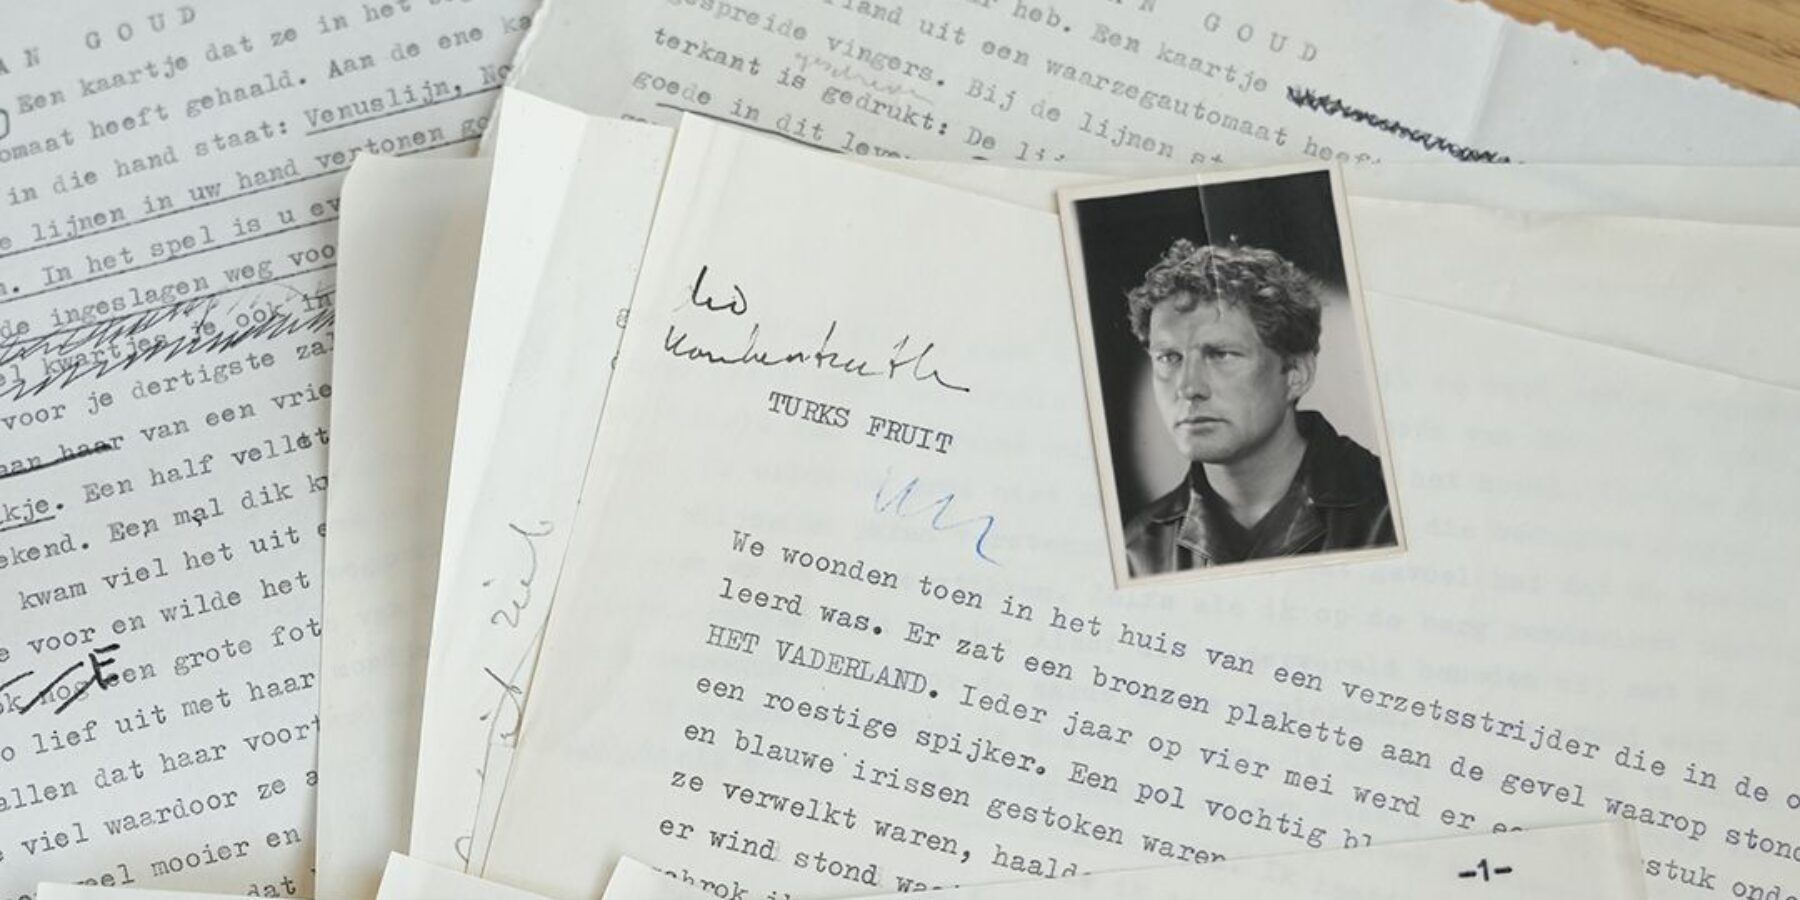 AN GOUD
Een kaartje dat ze in het
omaat heeft gehaald. Aan de ene ka
in die hand staat: Venuslijn,
e lijnen in uw hand vertonen
. In het spel is u
de ingeslagen weg voo
el kwartjes je ook in
voor je dertigste zal
aan haar van een vrie
kje. Een half
ekend. Een mal dik
kwam viel het uit
e voor en wilde het
ok nog een grote fot
E
o lief uit met haar
allen dat haar voort
viel waardoor ze a
eel mooier en
dat
N GOUD
r heb. Een kaartje
land uit een waarzegautomaat heef
gespreide vingers. Bij de lijnen st
geschreven
terkant is gedrukt: De li
goede in dit leve
TURKS FRUIT
We woonden toen in het huis van een verzetsstrijder die in de o
leerd was. Er zat een bronzen plakette aan de gevel waarop stond
HET VADERLAND. Ieder jaar op vier mei werd er
stuk onde
een roestige spijker. Een pol vochtig bl
en blauwe irissen gestoken waren
ze verwelkt waren, haald
er wind stond wa
schrok i
-1-